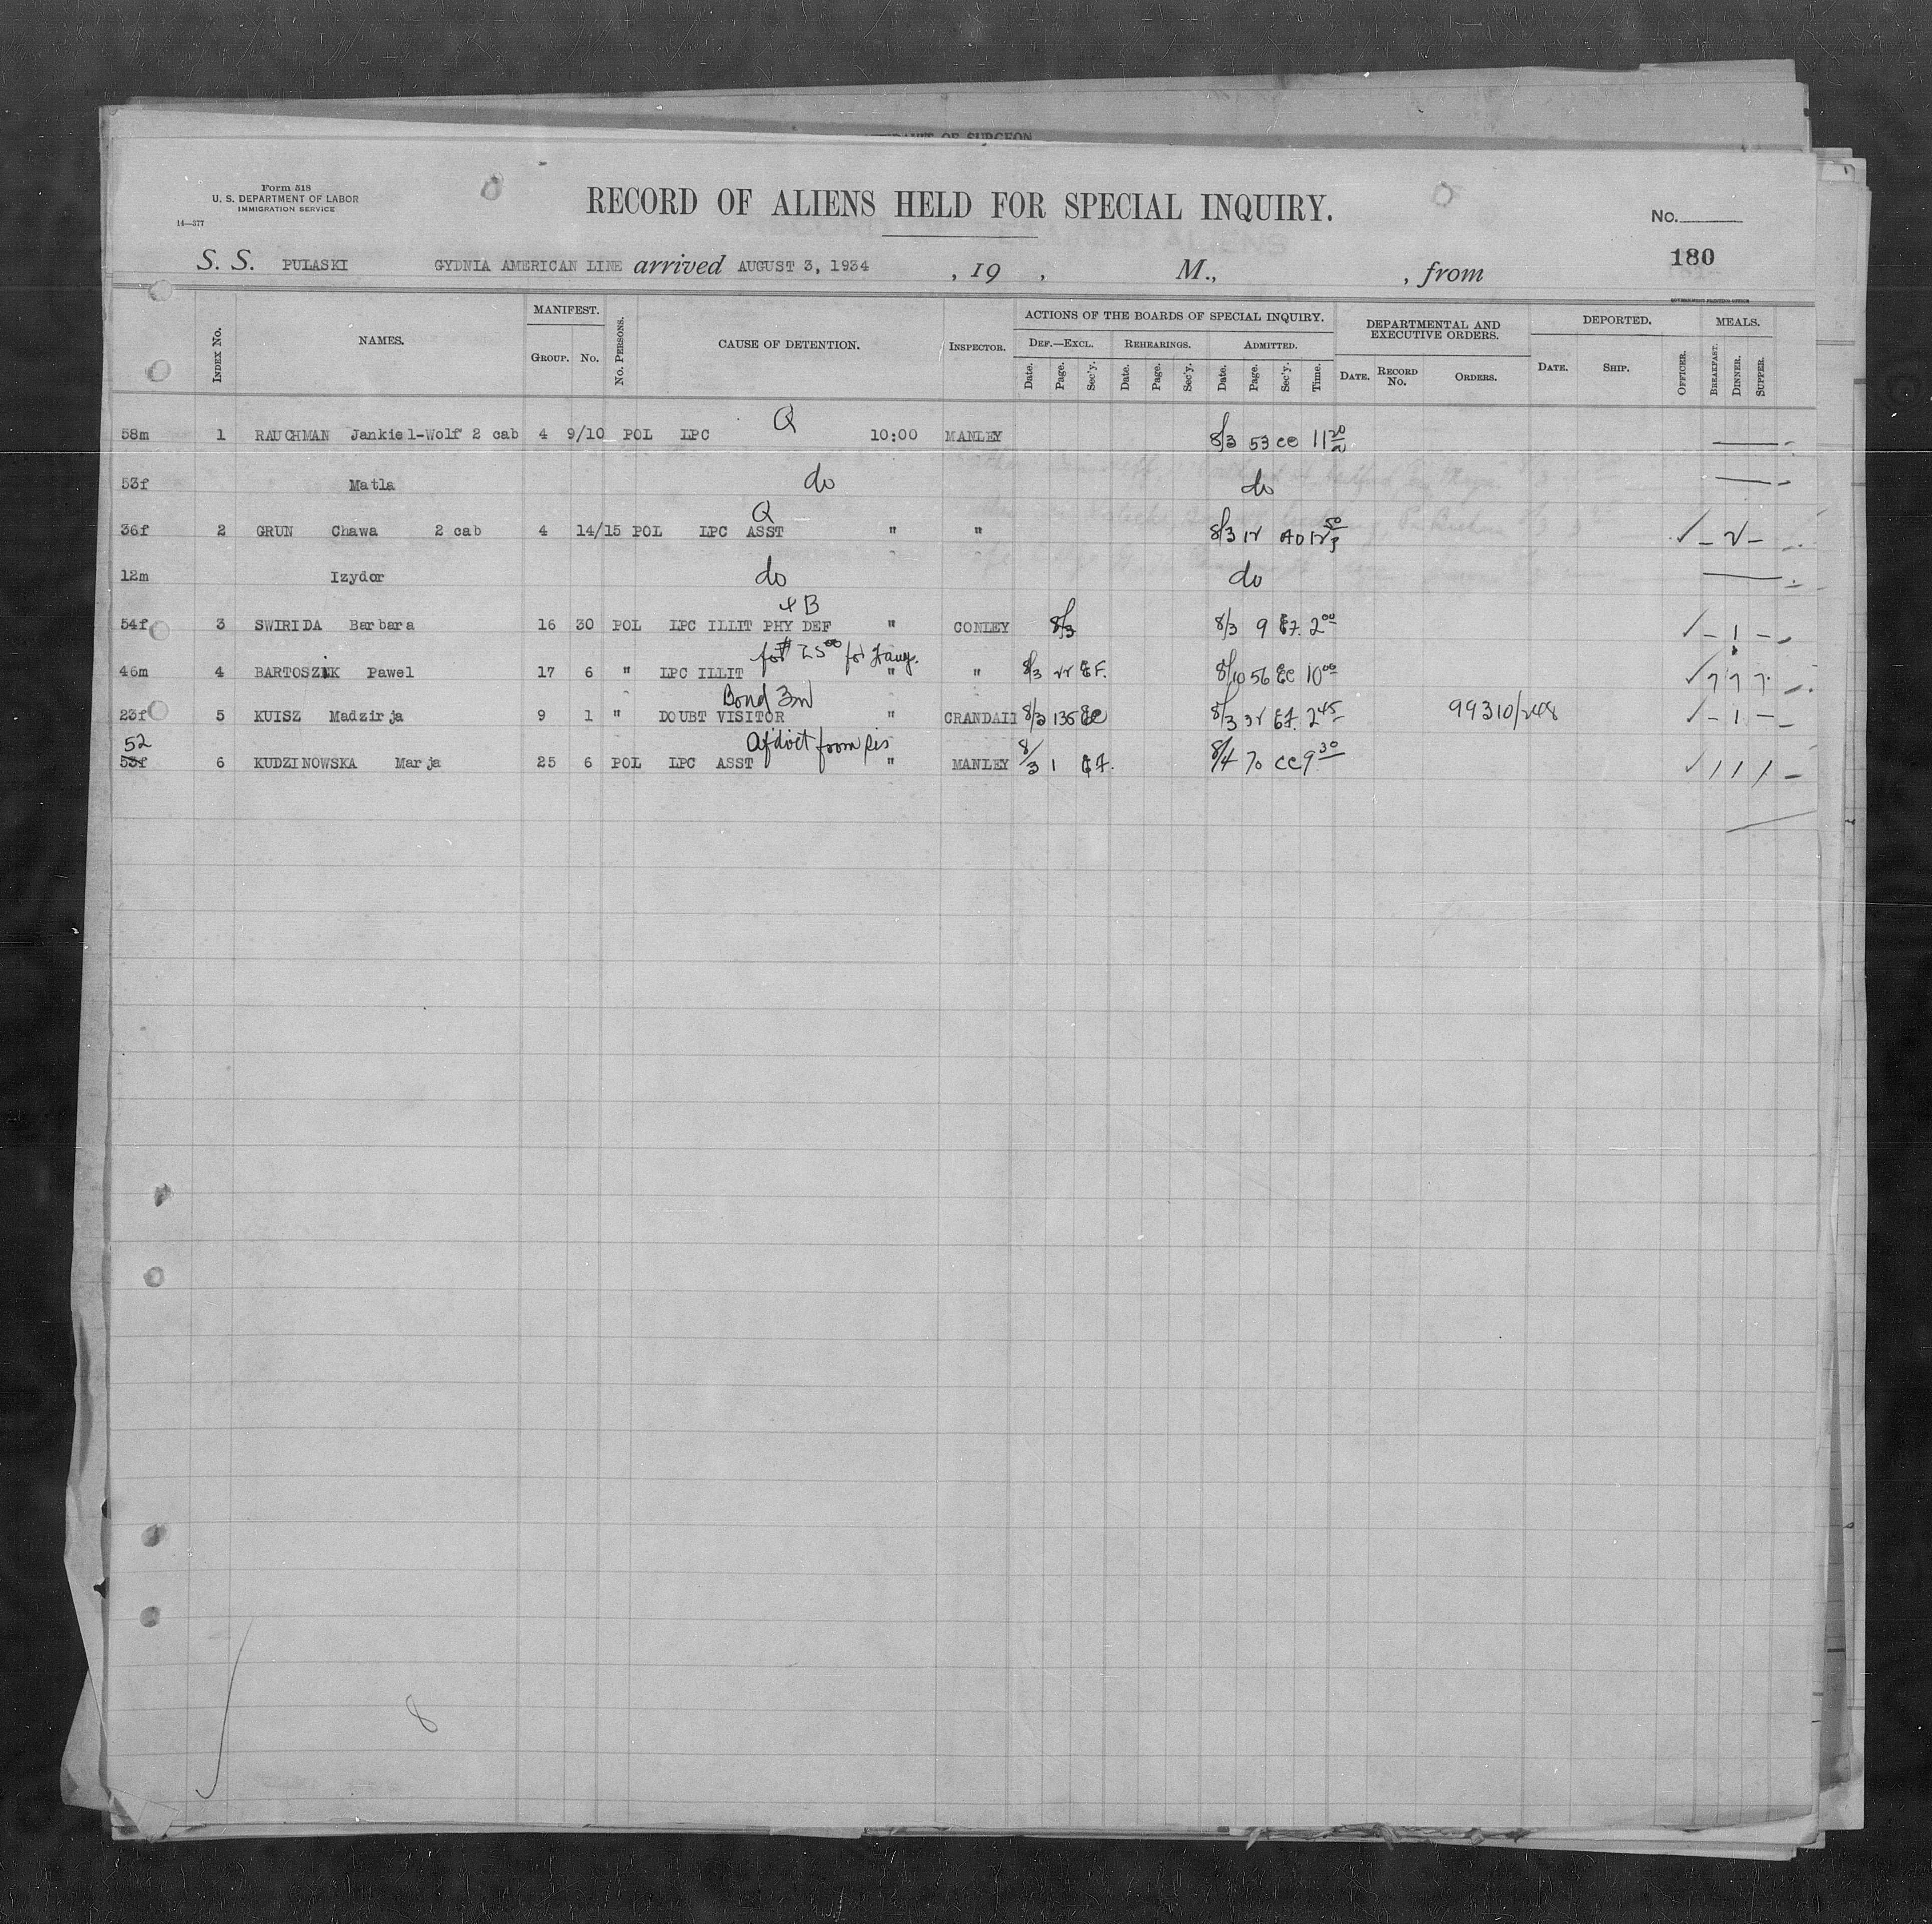 AFFIDAVIT OF SURGEON
Form 518
U. S. DEPARTMENT OF LABOR
IMMIGRATION SERVICE
14—377
RECORD OF ALIENS HELD FOR SPECIAL INQUIRY.
No.
180
S. S. PULASKI GYDNIA AMERICAN LINE arrived AUGUST 3, 1934 , 19 , M., , from
GOVERNMENT PRINTING OFFICE
Index No. NAMES. MANIFEST. No. Persons. CAUSE OF DETENTION. Inspector. ACTIONS OF THE BOARDS OF SPECIAL INQUIRY. DEPARTMENTAL AND EXECUTIVE ORDERS. DEPORTED. Officer. MEALS.
Group. No. Def.—Excl. Rehearings. Admitted. Date. Record No. Orders. Date. Ship. Breakfast. Dinner. Supper.
Date. Page. Sec'y. Date. Page. Sec'y. Date. Page. Sec'y. Time.
Q
58m 1 RAUCHMAN Jankiel-Wolf 2 cab 4 9/10 POL LPC 10:00 MANLEY 8/3 53 EC 11 20 a
53f Matla do do
Q
36f 2 GRUN Chawa 2 cab 4 14/15 POL LPC ASST " " 8/3 12 AO 12 50 p
12m Izydor do do
+ B
54f 3 SWIRIDA Barbara 16 30 POL LPC ILLIT PHY DEF " CONLEY 8/3 8/3 9 EF. 2 00 1
for $ 25 00 for
46m 4 BARTOSZIK Pawel 17 6 " LPC ILLIT " " 8/3 22 EF. 8/10 56 EC 10 00 7 7 7
Bond 3m
23f 5 KUISZ Madzirja 9 1 " DOUBT VISITOR " CRANDAII 8/3 135 EC 8/3 32 EF. 2 45 99310/248 1
52 Afdvit from
53f 6 KUDZINOWSKA Marja 25 6 POL LPC ASST " MANLEY 8/3 1 EF. 8/4 70 CC 9 30 1 1 1
8